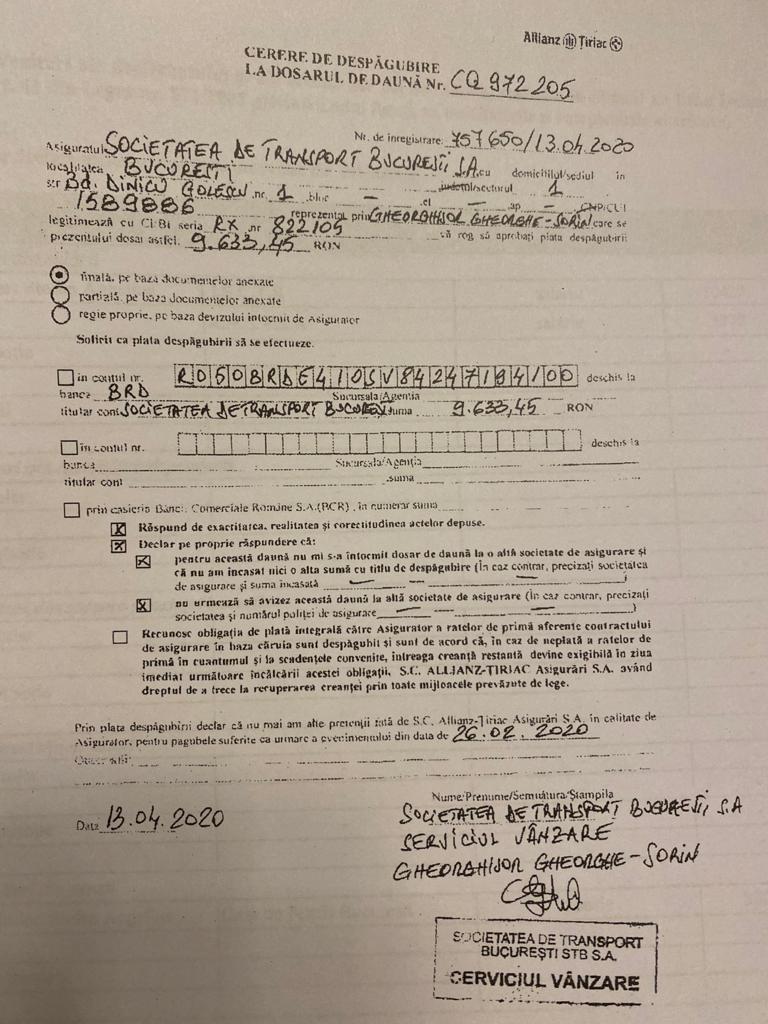 Allianz Țiriac
CERERE DE DESPĂGUBIRE
LA DOSARUL DE DAUNĂ Nr. CQ 972205
Nr. de înregistrare: 757650/13.04.2020
Asiguratul SOCIETATEA DE TRANSPORT BUCUREȘTI S.A. cu domiciliul/sediul în
localitatea BUCUREȘTI
str BD. DINICU GOLESCU nr. 1 bloc — et — ap — județul/sectorul 1
CNP/CUI 1589886 reprezentat prin GHEORGHIȘOR GHEORGHE-SORIN care se
legitimează cu CI/BI seria RX nr 822105 vă rog să aprobați plata despăgubirii
prezentului dosar astfel: 9.633,45 RON
finală, pe baza documentelor anexate
parțială, pe baza documentelor anexate
regie proprie, pe baza devizului întocmit de Asigurator
Solicit ca plata despăgubirii să se efectueze:
în contul nr. deschis la
banca BRD Sucursala/Agenția
titular cont SOCIETATEA DE TRANSPORT BUCUREȘTI suma 9.633,45 RON
în contul nr. deschis la
banca Sucursala/Agenția
titular cont suma
prin casieria Băncii Comerciale Române S.A.(BCR), în numerar suma
X Răspund de exactitatea, realitatea și corectitudinea actelor depuse.
X Declar pe proprie răspundere că:
X pentru această daună nu mi s-a întocmit dosar de daună la o altă societate de asigurare și
că nu am încasat nici o altă sumă cu titlu de despăgubire (în caz contrar, precizați societatea
de asigurare și suma încasată — — —)
X nu urmează să avizez această daună la altă societate de asigurare (în caz contrar, precizați
societatea și numărul poliței de asigurare — — —)
Recunosc obligația de plată integrală către Asigurator a ratelor de primă aferente contractului
de asigurare în baza căruia sunt despăgubit și sunt de acord că, în caz de neplată a ratelor de
primă în cuantumul și la scadențele convenite, întreaga creanță restantă devine exigibilă în ziua
imediat următoare încălcării acestei obligații, S.C. ALLIANZ-ȚIRIAC Asigurări S.A. având
dreptul de a trece la recuperarea creanței prin toate mijloacele prevăzute de lege.
Prin plata despăgubirii declar că nu mai am alte pretenții față de S.C. Allianz-Țiriac Asigurări S.A. în calitate de
Asigurator, pentru pagubele suferite ca urmare a evenimentului din data de 26.02.2020
Observații:
Data 13.04.2020
Nume/Prenume/Semnătura/Ștampila
SOCIETATEA DE TRANSPORT BUCUREȘTI S.A
SERVICIUL VÂNZARE
GHEORGHIȘOR GHEORGHE-SORIN
SOCIETATEA DE TRANSPORT
BUCUREȘTI STB S.A.
SERVICIUL VÂNZARE